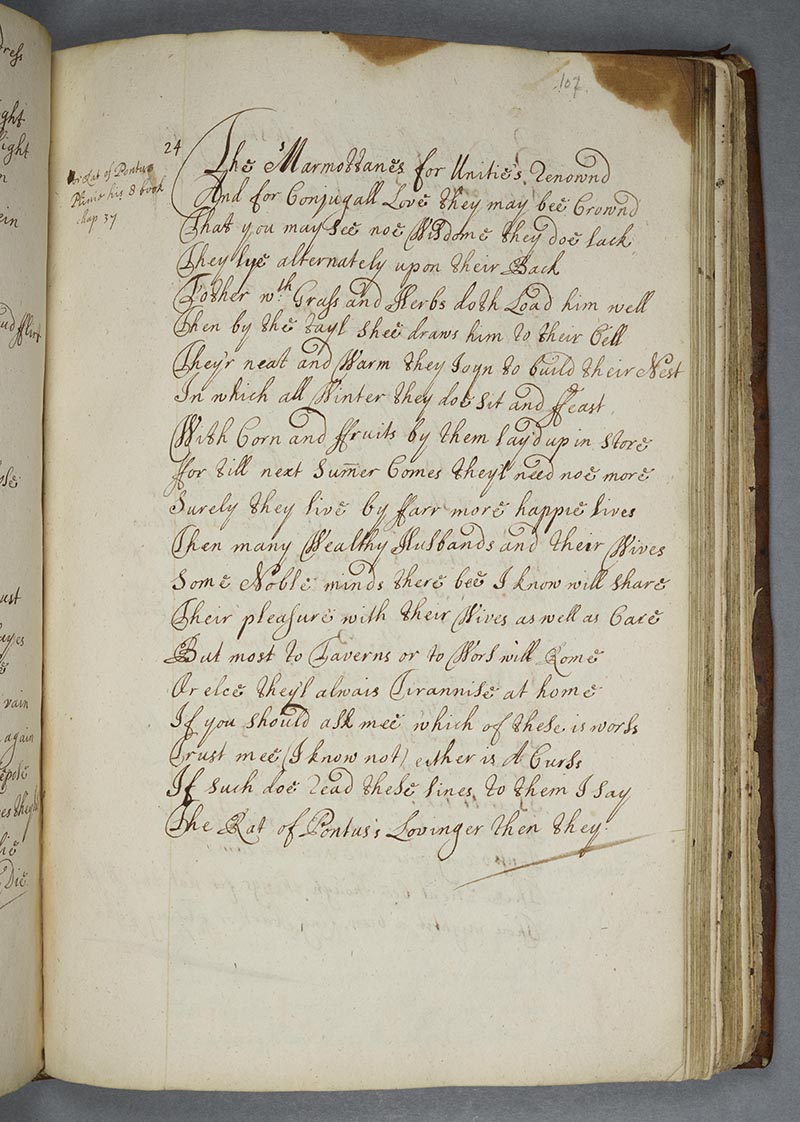 107
24
or Rat of Pontus
Plinie his 8 book
chap 37
The Marmottanes for Unitie's Renownd
And for Conjugall Love they may bee Crownd
That you may see noe Wisdome they doe lack
They lye alternately upon their Back
T'other wth. Grass and Herbs doth Load him well
Then by the tayl shee draws him to their Cell
They'r neat and Warm they Joyn to build their Nest
In which all Winter they doe sit and ffeast
With Corn and ffruits by them layd up in store
ffor till next Sum̅er Comes they'l need noe more
Surely they live by ffarr more happie lives
Then many Wealthy Husbands and their Wives
Some Noble minds there bee I know will share
Their pleasure with their Wives as well as Care
But most to Taverns or to Wors will Rome
Or elce they'l alwais Tirannise at home
If you should ask mee which of these is worss
Trust mee (I know not) either is A Curss
If such doe read these lines, to them I say
The Rat of Pontus's Lovinger then they.
ght
light
ein
ust
vain
again
Die